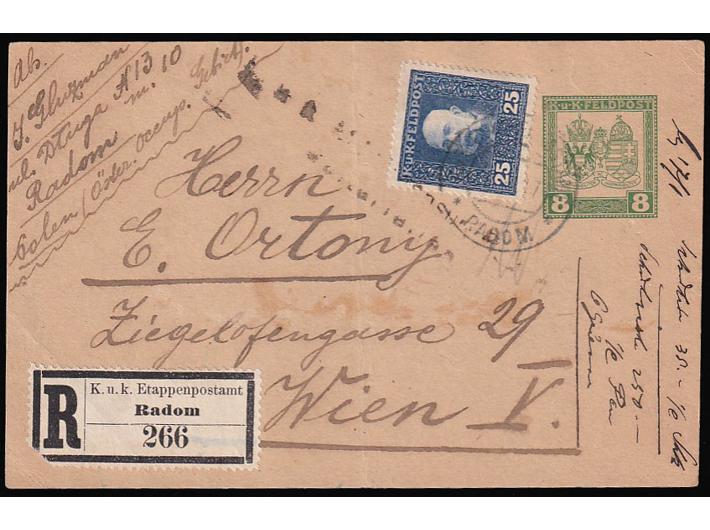 Abs.
J. Gluzman
ul. Długa N 13
m. 10
Radom
Polen/Öster. occup. Gebirt/.
K.u.K. FELDPOST
25
25
K.u.K. FELDPOST
8 8
RADOM
Herrn
E. Ortony
Ziegelofengasse 29
Wien V.
R
K. u. k. Etappenpostamt
Radom
266